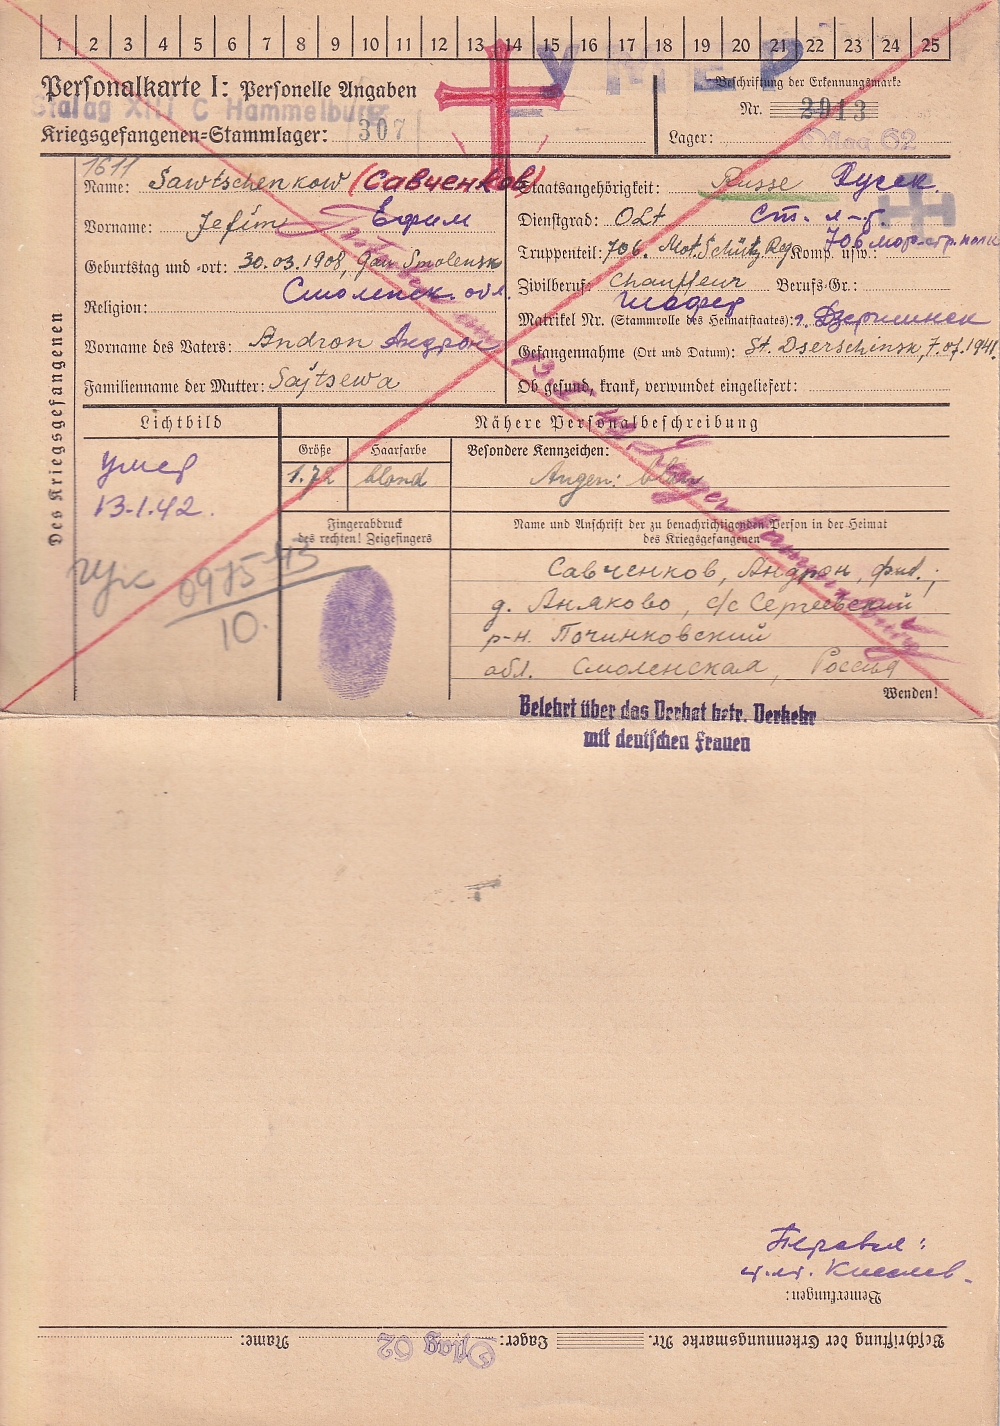 1 2 3 4 5 6 7 8 9 10 11 12 13 14 15 16 17 18 19 20 21 22 23 24 25
УМЕР
Personalkarte I: Personelle Angaben
Beschriftung der Erkennungsmarke
Stalag XIII C Hammelburg
Nr. 2013
Kriegsgefangenen-Stammlager: 307
Lager: Oflag 62
1611
Des Kriegsgefangenen
Name: Sawtschenkow (Савченков)
Staatsangehörigkeit: Russe Русск.
Vorname: Jefim Ефим
Dienstgrad: OLt Ст. л-т.
Geburtstag und -ort: 30.03.1908, Gau Smolensk
Truppenteil: 706. Mot. Schütz. Reg. Komp. usw.: 706 мот-стр. полк
Смоленск. обл.
Religion:
Zivilberuf: Chauffeur Berufs-Gr.:
Шофер
Matrikel Nr. (Stammrolle des Heimatstaates): г. Дзержинск
Vorname des Vaters: Andron Андрон
Gefangennahme (Ort und Datum): St. Dserschinsk, 7.07.1941.
Familienname der Mutter: Sajtsewa
Ob gesund, krank, verwundet eingeliefert:
gestorben am 13.1.42 Lager Hammelburg
Lichtbild
Nähere Personalbeschreibung
Größe
Haarfarbe
Besondere Kennzeichen:
1.72
blond
Augen: blau
умер
13.1.42.
Fingerabdruck
des rechten! Zeigefingers
Name und Anschrift der zu benachrichtigenden Person in der Heimat
des Kriegsgefangenen
Гук 0975-43
10.
Савченков, Андрон,
д. Аняково, с/с Сергеевский
р-н. Починковский
обл. Смоленская, Россия
Wenden!
Belehrt über das Verbot betr. Verkehr
mit deutschen Frauen
Перевел:
Киселев.
Bemerkungen:
Beschriftung der Erkennungsmarke Nr. Lager: Oflag 62 Name: